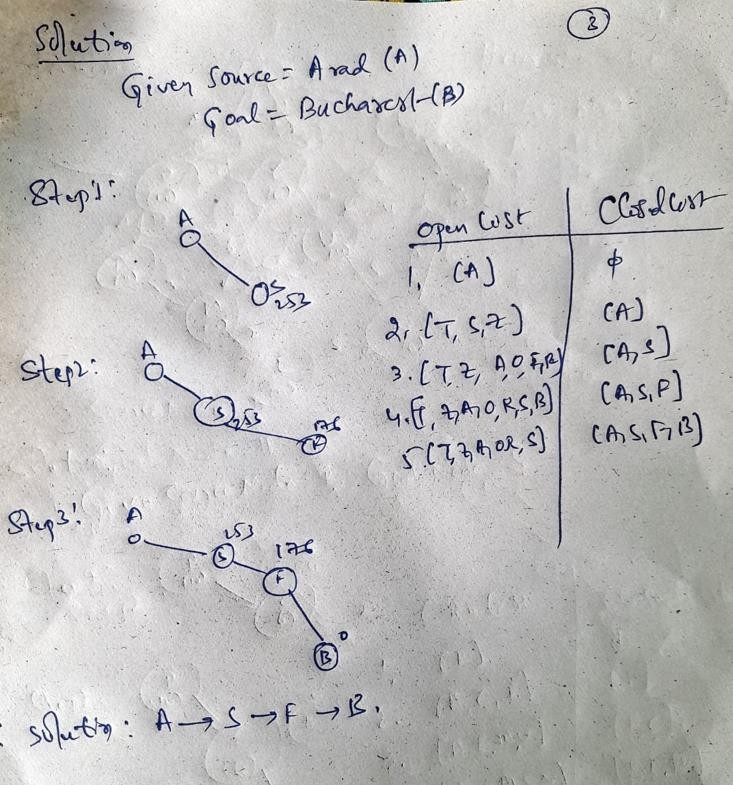 3
Solution
Given Source = Arad (A)
Goal = Bucharest (B)
Step1:
A
S
253
Step2:
A
S
253
176
F
Step3:
A
253
S
176
F
0
B
Open List | Closed List
1. [A] | φ
2. [T, S, Z] | [A]
3. [T, Z, A, O, F, R] | [A, S]
4. [T, Z, A, O, R, S, B] | [A, S, F]
5. [T, Z, A, O R, S] | [A, S, F, B]
Solution : A → S → F → B.